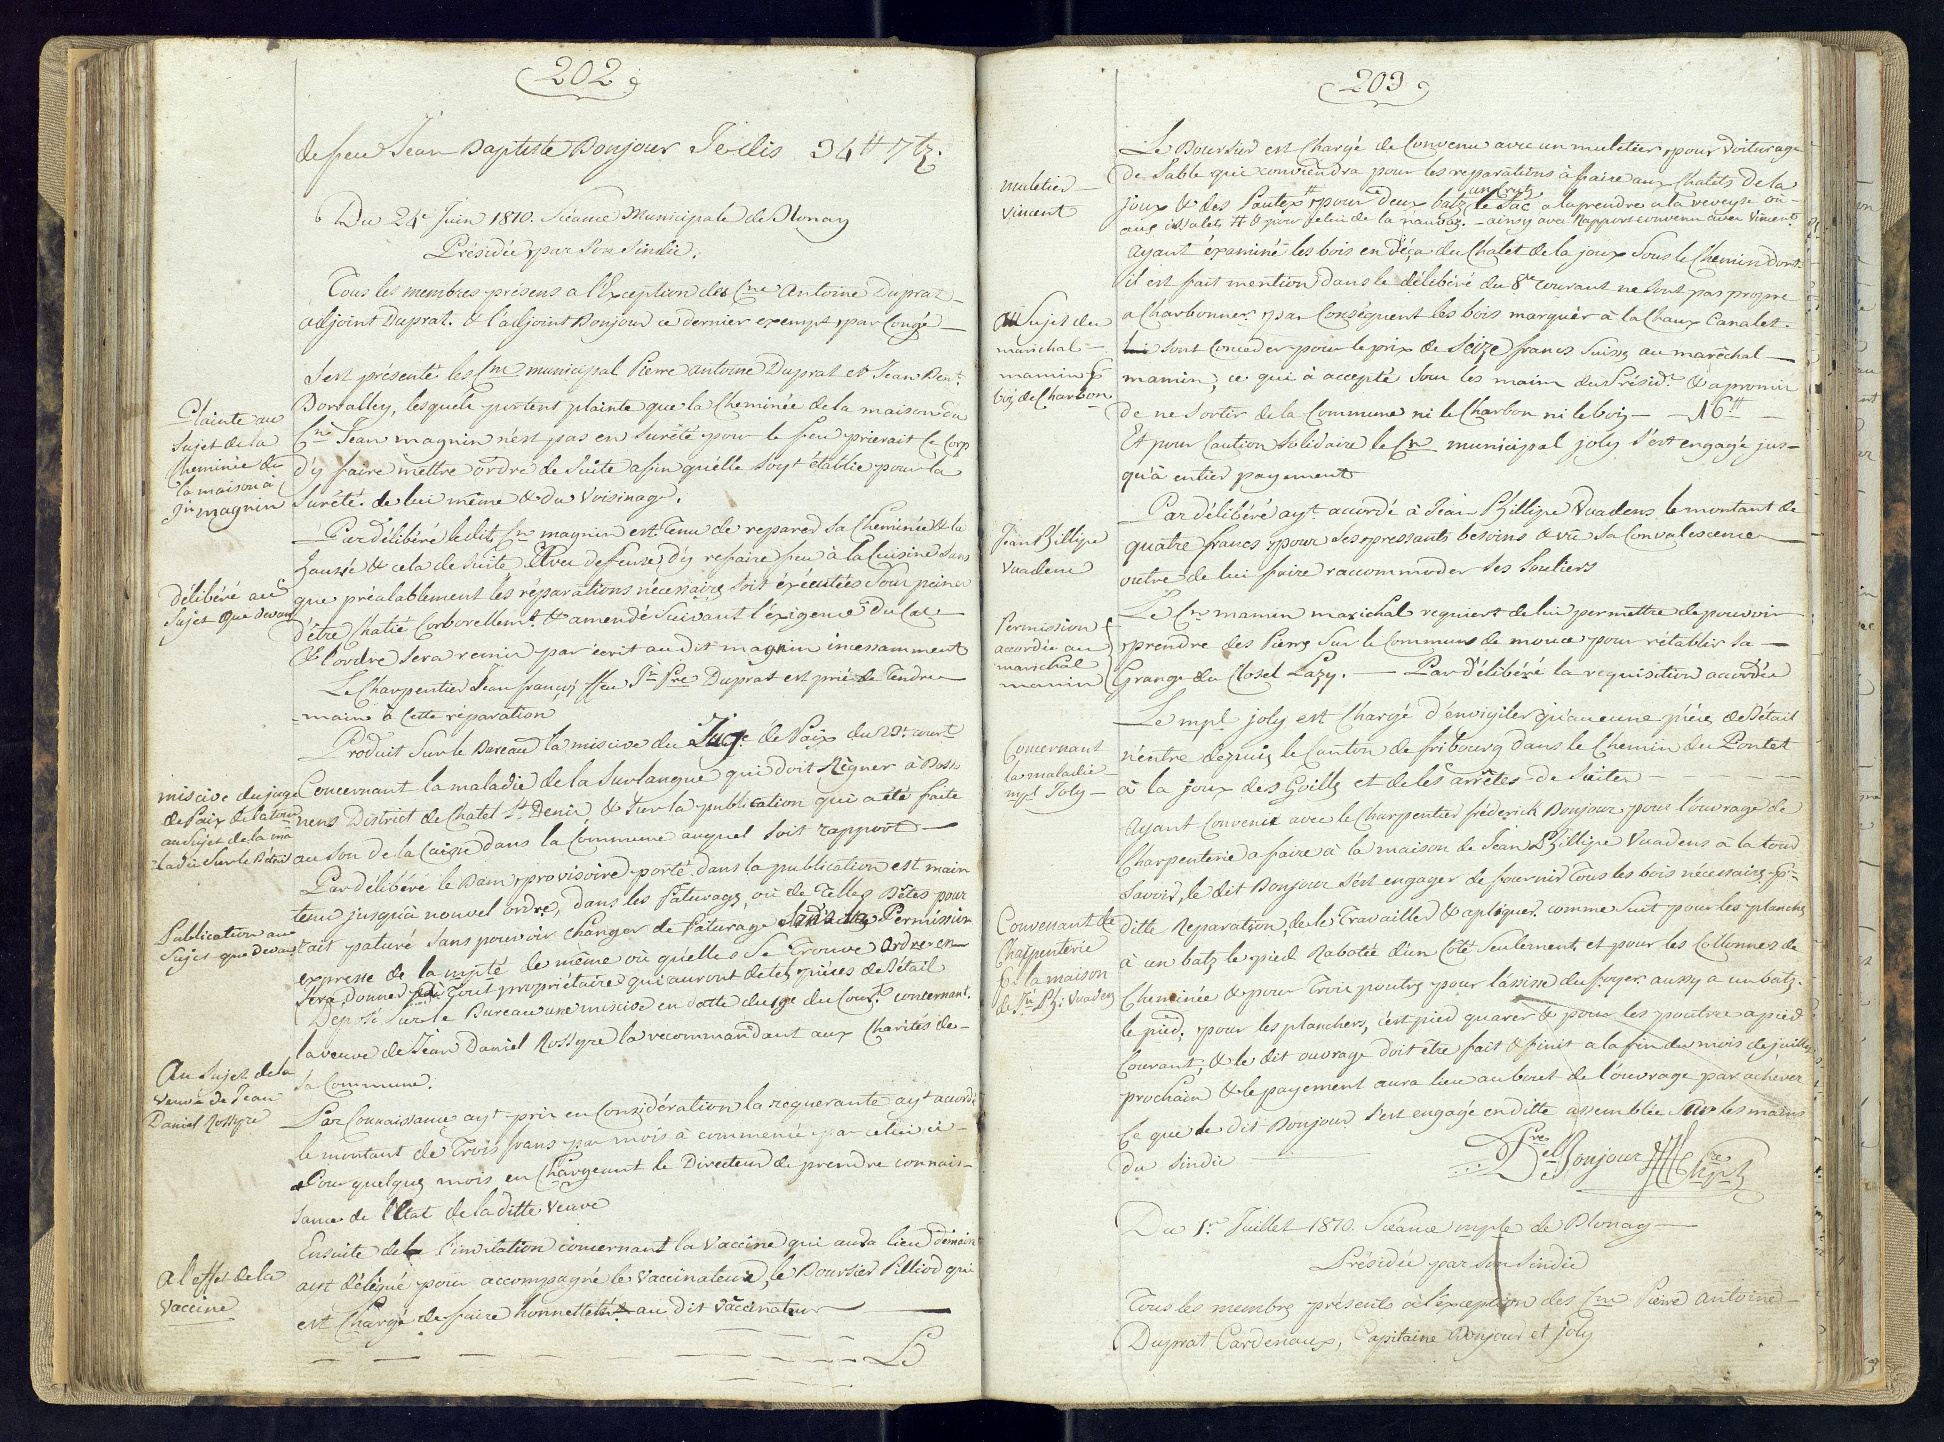 202
de feu Jean Baptiste Bonjour Jedlis 34 ₶ 7 btz.
Du 24e Juin 1810. Scéance Municipale de Blonay
Présidée par Son Sindic.
Tous les membres présens a l'Exception des Cns Antoine Duprat
adjoint Duprat. & l'adjoint Bonjour ce dernier exempt par Congé
Plainte au
Sujet de la
Cheminée de
la maison à
Jn magnin
Sest présenté les Cns municipal Pierre antoine Duprat et Jean Bent.
Borralley, lesquels portent plainte que la Cheminée de la maison du
Cn Jean magnin n'est pas en Sureté pour le feu prierait le Corp
d'y faire mettre ordre de Suite afin qu'elle soyt établie pour la
Sureté de lui même & du Voisinage.
délibéré au
Sujet que devant
Par délibéré ledit Cn magnin est Tenu de reparer sa Cheminée & la
haussé & cela de Suite Avec défense d'y refaire feu à la Cuisine Sans
que préalablement les réparations nécessaires soit exécutées Sous peine
d'être Chatié Corporellemt. & amendé Suivant l'éxigence du Cas
& l'ordre Sera remis par écrit au dit magnin incessamment
Le Charpentier Jean françois ffeu Jn Pre Duprat est prié de Tendre
main à Cette réparation
miscive du juge
de Paix de la tour
au Sujet de la ma
ladie Sur le Bétail
Produit Sur le Bureau la miscive du Juge de Paix du 20e court
Concernant la maladie de la Surlangue qui doit Règner à Boss
nens District de Chatel St. Denis, & Sur la publication qui a été faite
au Son de la Caisse dans la Commune auquel Soit rapport
Publication au
Sujet que devant
Par délibéré le Bam provisoire porté dans la publication est main
tenu jusqu'à nouvel ordre, dans les Paturages, où de Telles Bêtes pour
rait paturé Sans pouvoir changer de Paturage Sans la Permission
expresse de la mpté de même où quelles Se Trouve Ordre en
Sera donner à Tout propriétaire qui auront de tels pièces de Bétail
Au Sujet de la
Veuve de Jean
Daniel Rossyre
Deposé Sur le Bureau une miscive en datte du 19e du Court. concernant
la veuve de Jean Daniel Rossyre la recommandant aux Charités de
Sa Commune.
Par Connaissance ayt pris en Considération la requerante ayt accordé
le montant de Trois frans par mois à commencé par celui ci
Pour quelques mois en Chargeant le Directeur de prendre connais-
sance de l'Etat de la ditte Veuve
A l'effet de la
Vaccine
Ensuite de l'invitation concernant la Vaccine qui aura lieu demain
aut délégué pour accompagné le Vaccinateur, le Boursier Pilliod qui
est Chargé de faire honnetteté au dit Vaccinateur
Le
203
muletier
Vincent
Le Boursier est Chargé de Convenir avec un muletier pour Voiturage
de Sable qui conviendra pour les reparations à faire aux Chalets de la
joux & des Pautex pour deux batz un Crutz le Sac a la prendre a la veveyse où
aux Chalets & pour celui de la Nauvaz. ainsy avec Rapport convenu avec Vincent
Au Sujet du
marichal
mamin pr
bois de Charbon
Ayant éxaminé les bois en deça du Chalet de la joux Sous le Chemin dont
il est fait mention dans le délibéré du 8e courant ne sont pas propre
a Charbonner par Conséquent les bois marquér à la Chaux Canalet.
Sont Conceder pour le prix de Seize francs Suisse au maréchal
mamin, ce qui à accepté Sous les mains du Présidt. & a promis
de ne Sortir de la Commune ni le Charbon ni le bois — 16 ₶
Et pour Caution Solidaire le Cn municipal joly S'est engagé jus-
qu'à entier payement
Jean Phillipe
Vuadens
Par délibéré ayt. accordé à Jean Phillipe Vuadens le montant de
quatre francs pour Ses pressants besoins & vû Sa Convalescence
outre de lui faire raccommoder Ses Souliers
Permission
accordée au
marechal
mamin
Le Cn mamin marichal requiert de lui permettre de pouvoir
prendre des Pierres Sur le Commun de mouce pour rétablir Sa
Grange du Closel Lazy. — Par délibéré la requisition accordée
Concernant
la maladie
mpl Joly
Le mpl joly est Chargé d'envigiler qu'aucune piéces de Bétail
n'entre depuis le Canton de fribourg dans le Chemin du Pontet
à la joux des Goilly et de les arrêtes de Suites
Convenant de
Charpenterie
pr la maison
de Jn Ph: Vuadens
Ayant Convenir avec le Charpentier fréderick Bonjour pour l'ouvrage de
Charpenterie a faire à la maison de Jean Phillipe Vuadens à la tour
Savoir, le dit Bonjour S'est engager de fournir Tous les bois nécessaires pr
ditte Reparation, de les Travailler & apliquer. comme Suit pour les planches
à un batz le pied Rabotée d'un Côté Seulement et pour les Collonnes de
Cheminée & pour Trois poutres pour l'assise du foyer aussy a un batz.
le pied, pour les planchers, c'est pied quarer & pour les poutres a pied
Courant; & le dit ouvrage doit être fait & finit a la fin du mois de juillet
prochain & le payement aura lieu au bout de l'ouvrage par achever
Ce que le dit Bonjour S'est engagé en ditte assemblée Sur les mains
du Sindic
Bonjour
Du 1er. Juillet 1810. Scéance mple de Blonay
Présidée par Son Sindic
Tous les membres présents à l'exception des Cns Pierre Antoine
Duprat Cardenaux, Capitaine Bonjour et joly